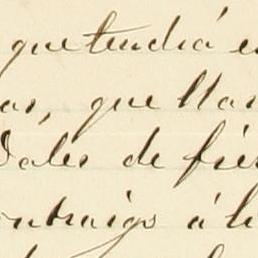 que tendrá e
as, que llas
dales de fie
ontraigo á l